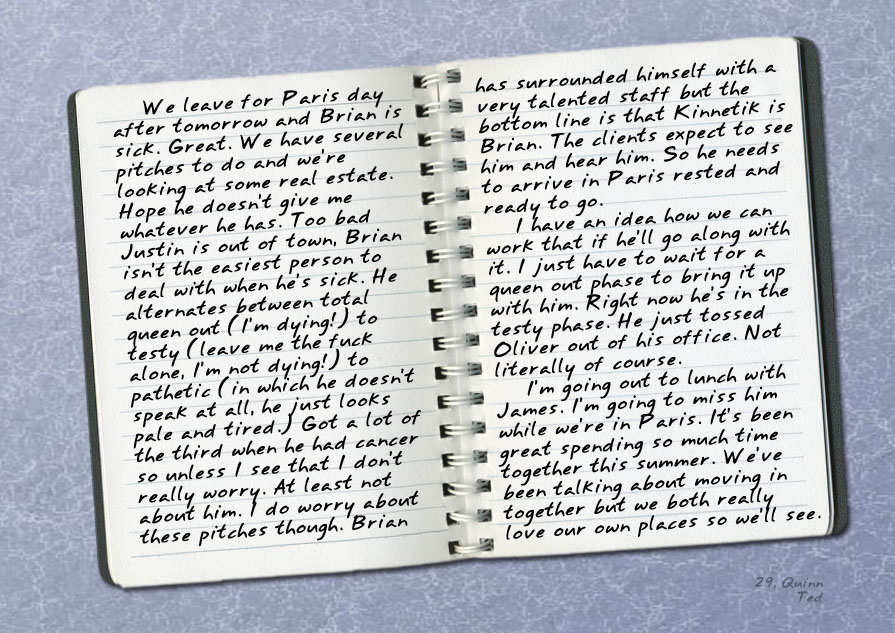 We leave for Paris day
after tomorrow and Brian is
sick. Great. We have several
pitches to do and we're
looking at some real estate.
Hope he doesn't give me
whatever he has. Too bad
Justin is out of town, Brian
isn't the easiest person to
deal with when he's sick. He
alternates between total
queen out (I'm dying!) to
testy (leave me the fuck
alone, I'm not dying!) to
pathetic (in which he doesn't
speak at all, he just looks
pale and tired.) Got a lot of
the third when he had cancer
so unless I see that I don't
really worry. At least not
about him. I do worry about
these pitches though. Brian
has surrounded himself with a
very talented staff but the
bottom line is that Kinnetik is
Brian. The clients expect to see
him and hear him. So he needs
to arrive in Paris rested and
ready to go.
I have an idea how we can
work that if he'll go along with
it. I just have to wait for a
queen out phase to bring it up
with him. Right now he's in the
testy phase. He just tossed
Oliver out of his office. Not
literally of course.
I'm going out to lunch with
James. I'm going to miss him
while we're in Paris. It's been
great spending so much time
together this summer. We've
been talking about moving in
together but we both really
love our own places so we'll see.
29, Quinn
Ted